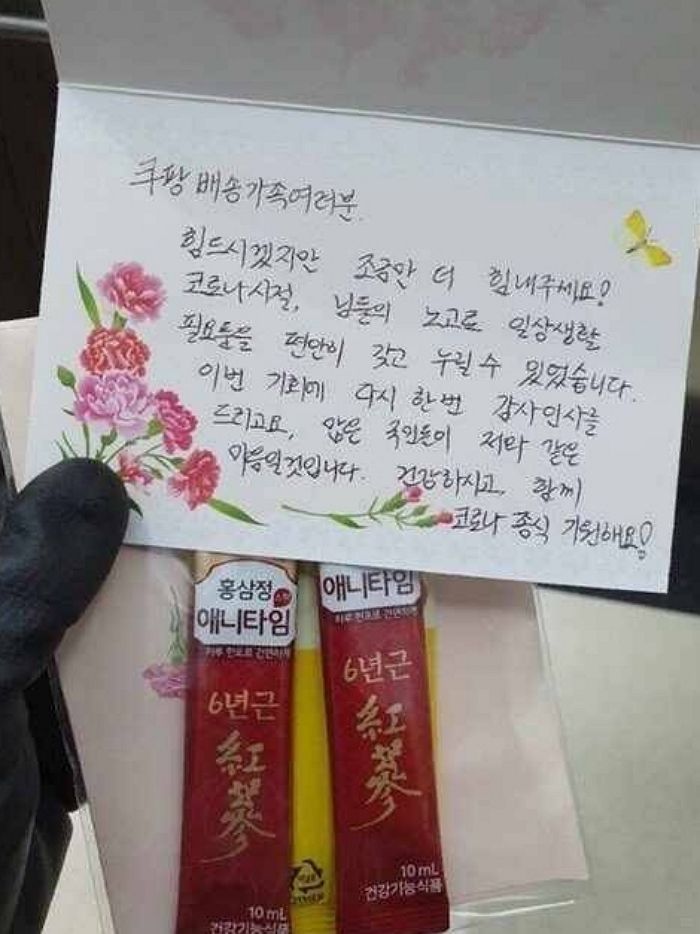 쿠팡 배송가족여러분.
힘드시겠지만 조금만 더 힘내주세요!
코로나시절, 님들의 노고로 일상생활
필요품을 편안히 갖고 누릴 수 있었습니다.
이번 기회에 다시 한번 감사인사를
드리고요, 많은 국민들이 저와 같은
마음일것입니다. 건강하시고, 함께
코로나 종식 기원해요!
홍삼정 스틱
애니타임
하루 한포로 간편하게
6년근
紅蔘
10 mL
건강기능식품
애니타임
하루 한포로 간편하게
6년근
紅蔘
10 mL
건강기능식품